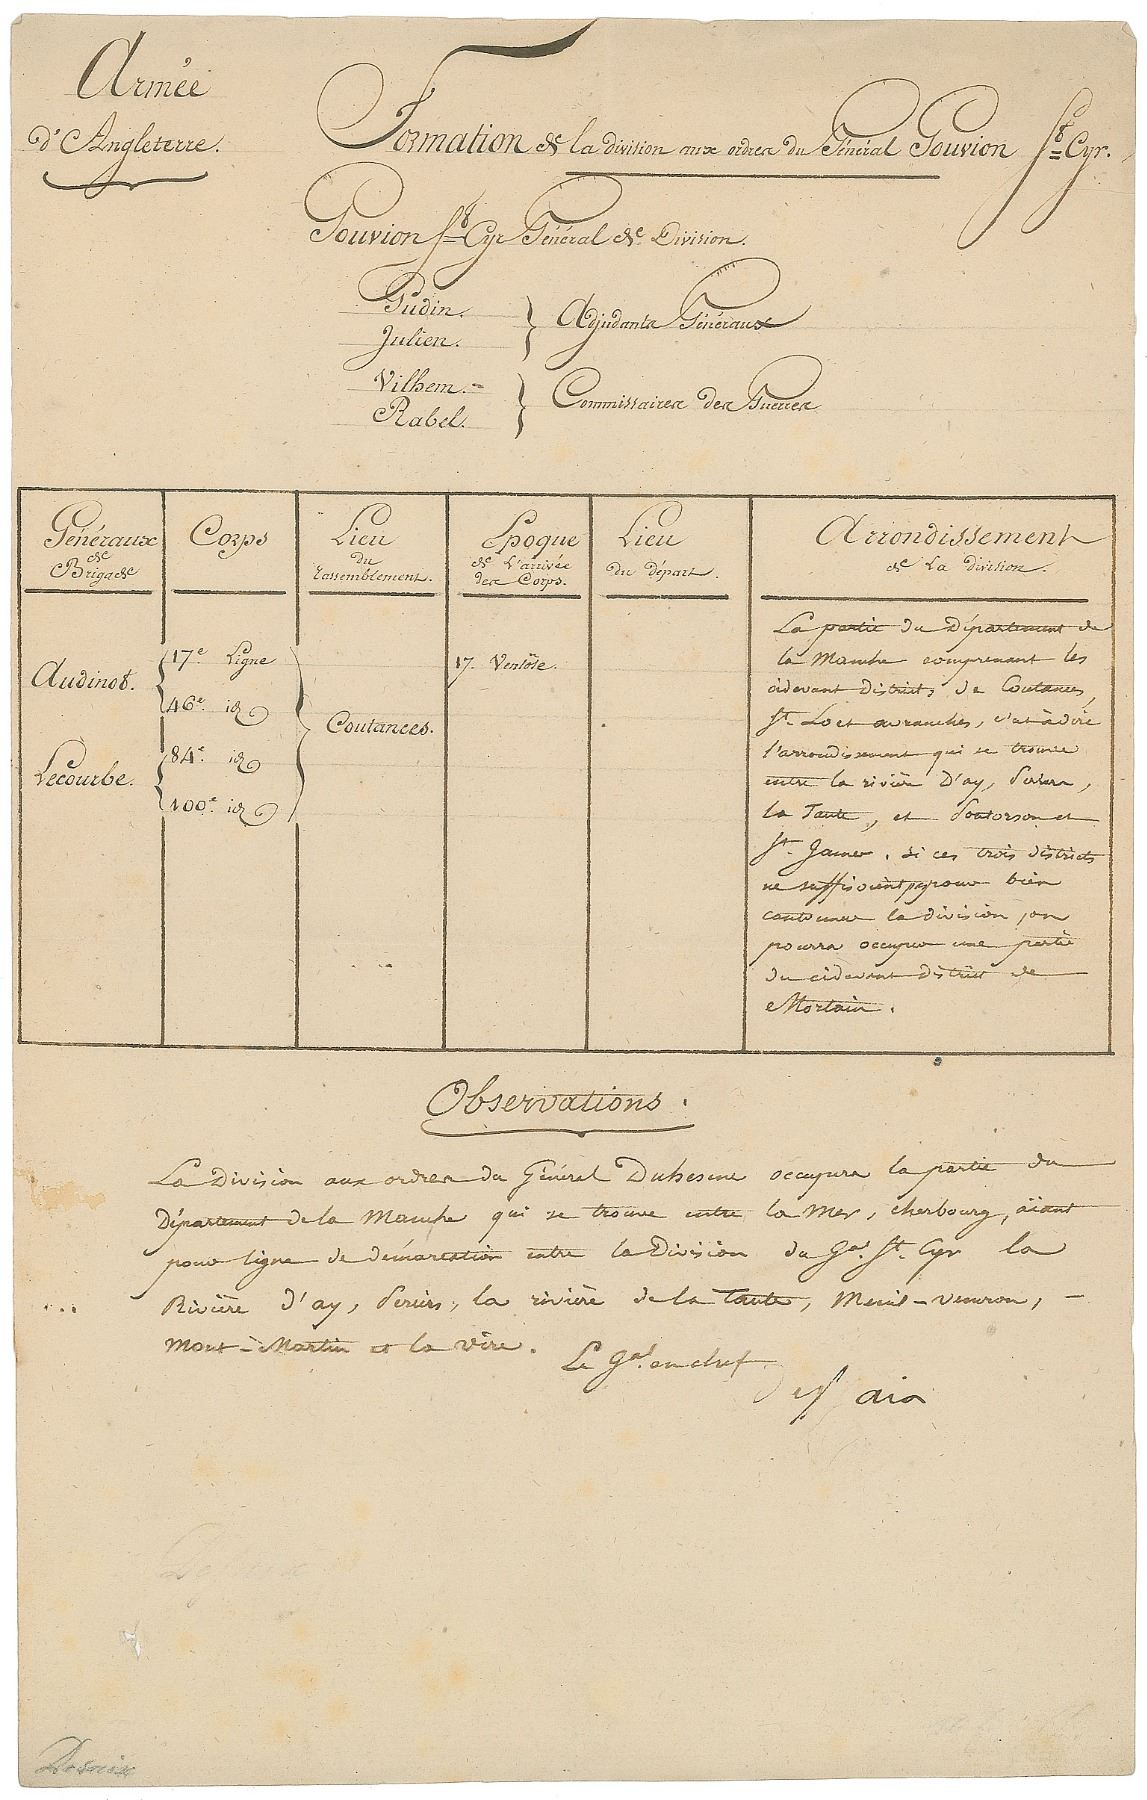 Armée
d'Angleterre.
Formation de la division aux ordres du Général Gouvion St Cyr.
Gouvion St Cyr Général de Division.
Gudin.
Julien.
Adjudants Généraux
Vilhem.
Rabel.
Commissaires des Guerres
Généraux
de
Brigade
Corps
Lieu
du
rassemblement.
Epoque
de l'arrivée
des Corps.
Lieu
du départ.
Arrondissement
de la division.
Audinot.
Lecourbe.
17e. Ligne
46e. id
84e. id
100e. id
Coutances.
17. Ventôse.
La partie du Département de
la Manche comprenant les
cidevant districts de Coutances,
St. Lo et avranches, c'est à dire
l'arrondissement qui se trouve
entre la rivière D'ay, Periers,
la Taute, et Pontorson et
St. James. Si ces trois districts
ne suffisoient pas pour bien
cantonner la division, on
pourra occuper une partie
du cidevant district de
Mortain.
Observations.
La Division aux ordres du Général Duhesme occupera la partie du
Département de la Manche qui se trouve entre la Mer, cherbourg, aïant
pour ligne de démarcation entre la Division du Gal. St. Cyr la
Rivière d'ay, Periers, la rivière de la Taute, Mesnil-veneron,
Mont-Martin et la vire.
Le Gal. en chef
Desaix
Desaix